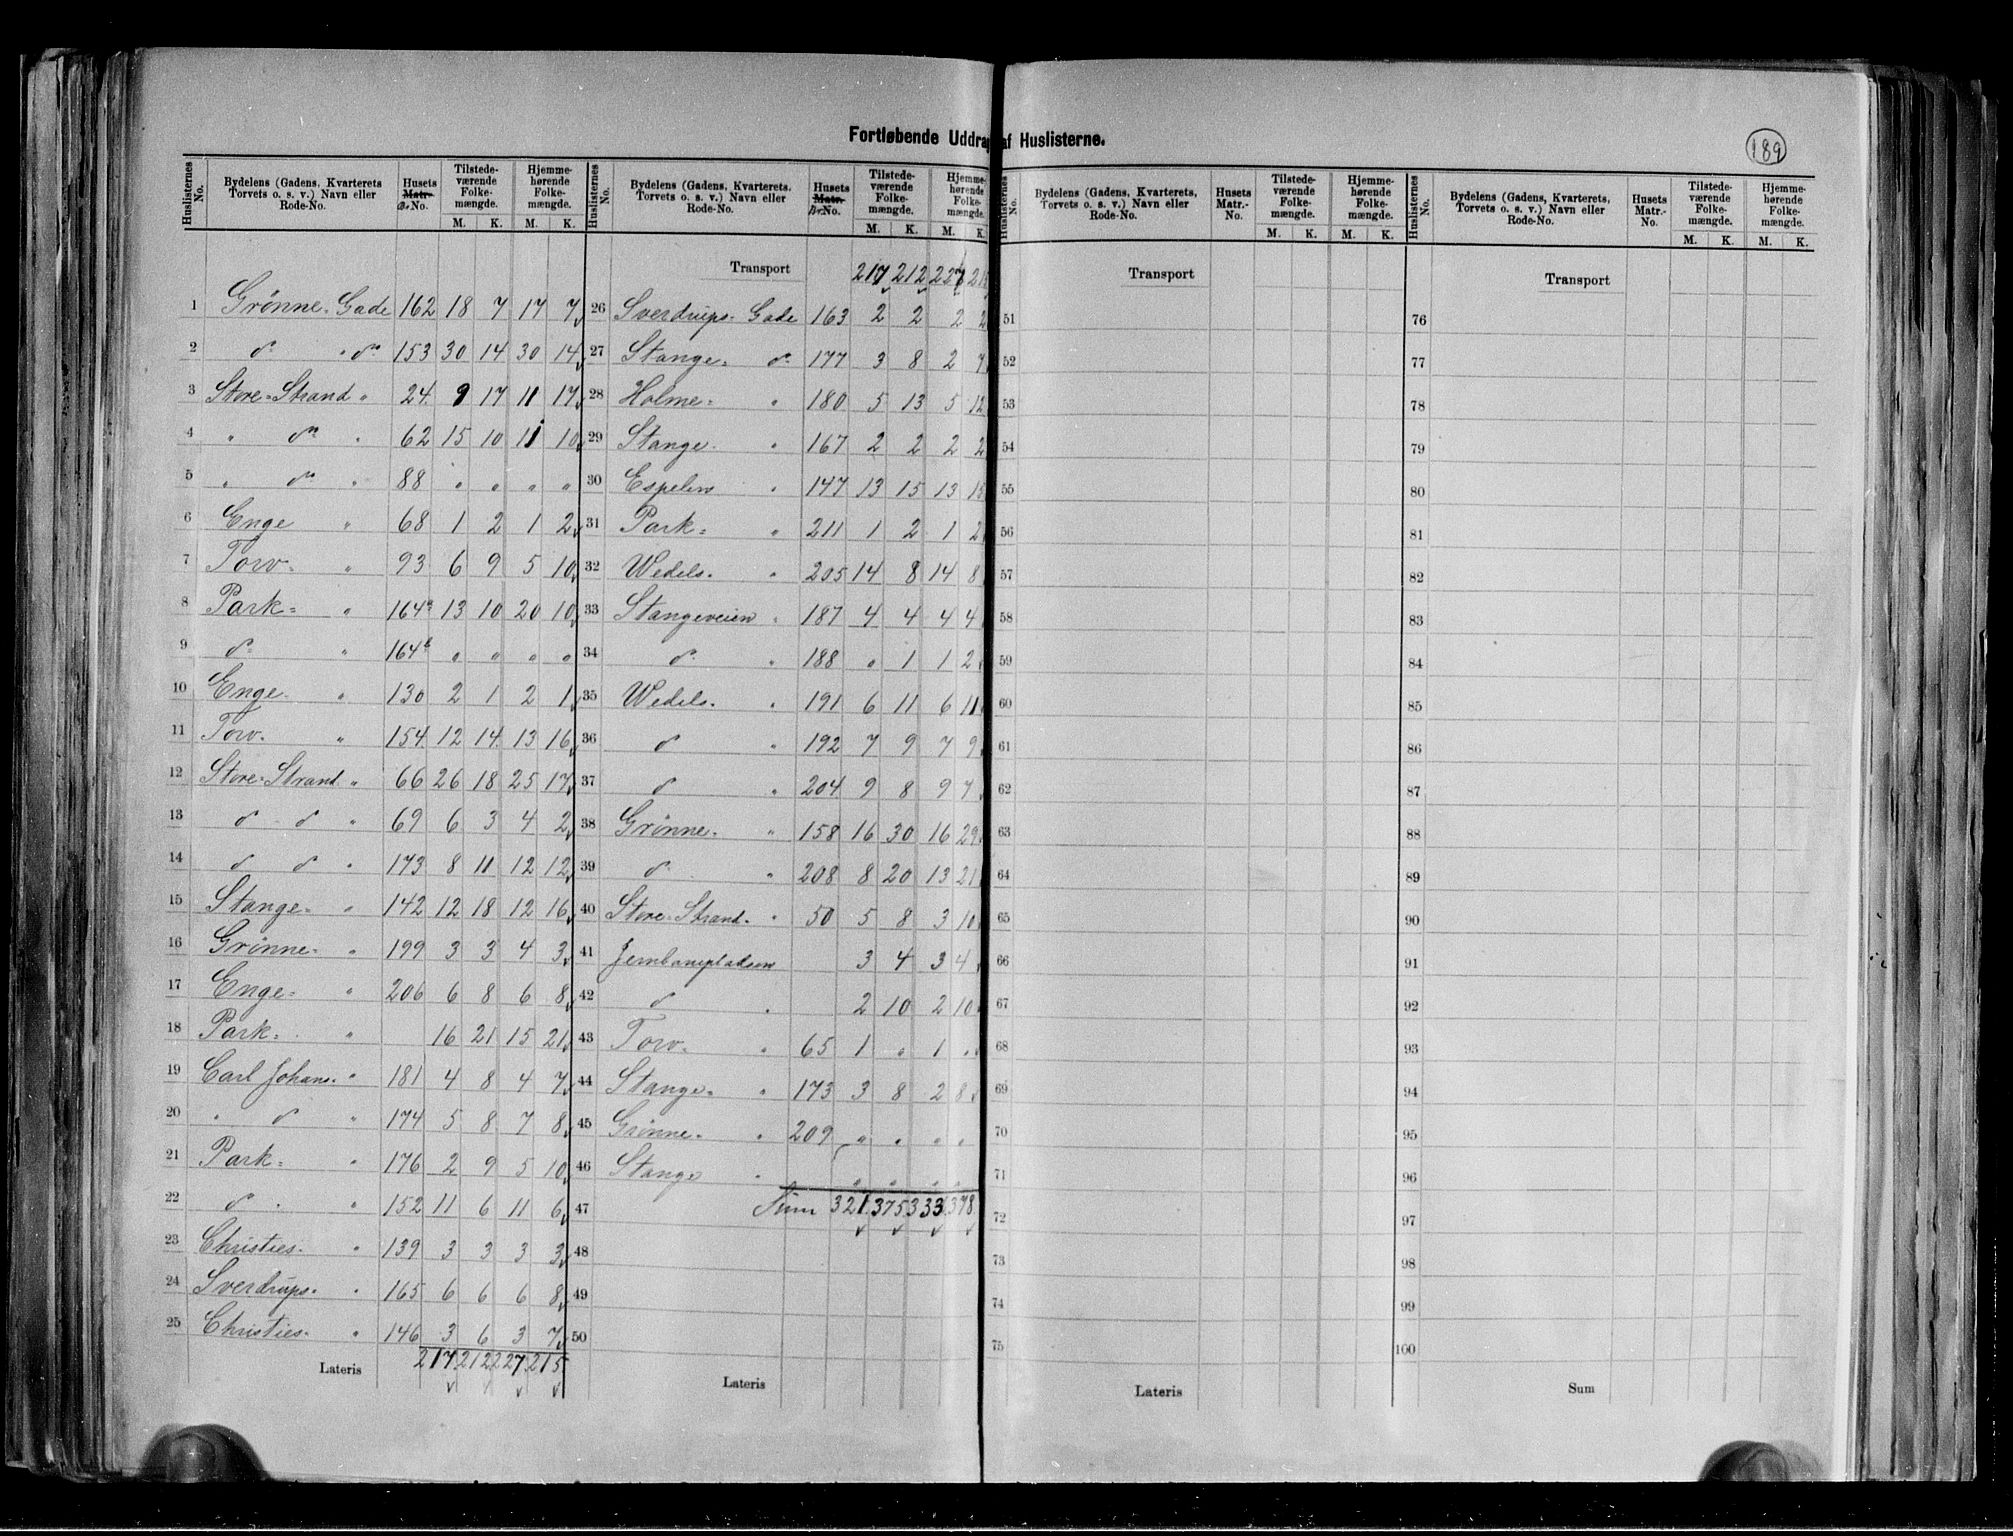 Fortløbende Uddrag af Huslisterne.
189
Huslisternes No. | Bydelens (Gadens, Kvarterets Torvets o. s. v.) Navn eller Rode-No. | Husets Matr.-No. | Tilstede-værende Folke-mængde. M. K. | Hjemme-hørende Folke-mængde. M. K.
1 Grønne-Gade 162 18 7 17 7
2 do do 153 30 14 30 14
3 Store-Strand " 24 9 17 11 17
4 " do " 62 15 10 11 10
5 " do " 88 " " " "
6 Enge " 68 1 2 1 2
7 Torv- " 93 6 9 5 10
8 Park- " 164a 13 10 20 10
9 do " 164b " " " "
10 Enge- " 130 2 1 2 1
11 Torv- " 154 12 14 13 16
12 Store-Strand " 66 26 18 25 17
13 do do " 69 6 3 4 2
14 do do " 173 8 11 12 12
15 Stange- " 142 12 18 12 16
16 Grønne- " 199 3 3 4 3
17 Enge- " 206 6 8 6 8
18 Park- " 16 21 15 21
19 Carl Johans- " 181 4 8 4 7
20 " do " 174 5 8 7 8
21 Park- " 176 2 9 5 10
22 do " 152 11 6 11 6
23 Christies- " 139 3 3 3 3
24 Sverdrups- " 165 6 6 6 8
25 Christies- " 146 3 6 3 7
Lateris 217 212 227 215
Huslisternes No. | Bydelens (Gadens, Kvarterets, Torvets o. s. v.) Navn eller Rode-No. | Husets Matr.-No. | Tilstede-værende Folke-mængde. M. K. | Hjemme-hørende Folke-mængde. M. K.
Transport 217 212 227
26 Sverdrups-Gade 163 2 2 2 2
27 Stange- do 177 3 8 2 7
28 Holme- " 180 5 13 5 12
29 Stange- " 167 2 2 2 2
30 Espelin " 147 13 15 13
31 Park- " 211 1 2 1 2
32 Wedels- " 205 14 8 14 8
33 Stangeveien " 187 4 4 4 4
34 do " 188 " 1 1 2
35 Wedels- " 191 6 11 6 11
36 do " 192 7 9 7 9
37 do " 204 9 8 9 7
38 Grønne- " 158 16 30 16 29
39 do " 208 8 20 13 21
40 Store-Strand- " 50 5 8 3 10
41 Jernbanepladsen 3 4 3 4
42 do " 2 10 2 10
43 Torv- " 65 1 " 1 "
44 Stange- " 173 3 8 2 8
45 Grønne- " 209 " " " "
46 Stange " " " " "
47 Sum 321 375 333 378
48
49
50
Lateris
Huslisternes No. | Bydelens (Gadens, Kvarterets, Torvets o. s. v.) Navn eller Rode-No. | Husets Matr.-No. | Tilstede-værende Folke-mængde. M. K. | Hjemme-hørende Folke-mængde. M. K.
Transport
51
52
53
54
55
56
57
58
59
60
61
62
63
64
65
66
67
68
69
70
71
72
73
74
75
Lateris
Huslisternes No. | Bydelens (Gadens, Kvarterets, Torvets o. s. v.) Navn eller Rode-No. | Husets Matr.-No. | Tilstede-værende Folke-mængde. M. K. | Hjemme-hørende Folke-mængde. M. K.
Transport
76
77
78
79
80
81
82
83
84
85
86
87
88
89
90
91
92
93
94
95
96
97
98
99
100
Sum